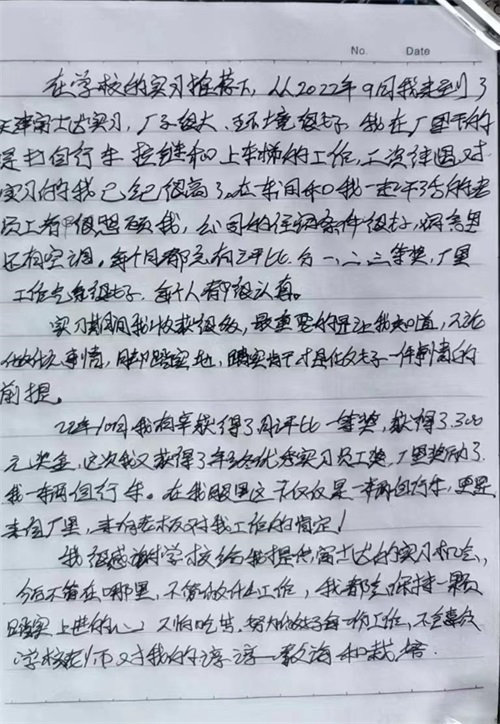 No. Date
在学校的实习推荐下，从2022年9月我来到了
天津富士达实习，厂子很大、环境很好，我在厂里干的
是扫自行车 拉链和上车梯的工作，二次待遇对
实习的我已经很高了。在车间和我一起干活的老
员工都很照顾我，公司的住宿条件很好，宿舍里
还有空调。每个月都会有评比，分一、二、三等奖，厂里
工作气氛很好，每个人都很认真。
实习期间我收获很多，最重要的是让我知道，不论
做什么事情，脚踏实地，踏实肯干才是做好一件事情的
前提。
22年10月我有幸获得了月评比一等奖，获得了300
元奖金，这次我又获得了年终优秀实习员工奖，厂里奖励了
我一辆自行车。在我眼里这不仅仅是一辆自行车，更是
来自厂里，来自老板对我工作的肯定！
我很感谢学校给我提供富士达的实习机会，
今后不管在哪里，不管做什么工作，我都会保持一颗
踏实上进的心，不怕吃苦，努力做好每一份工作，不会辜负
学校老师对我的谆谆教诲和栽培。